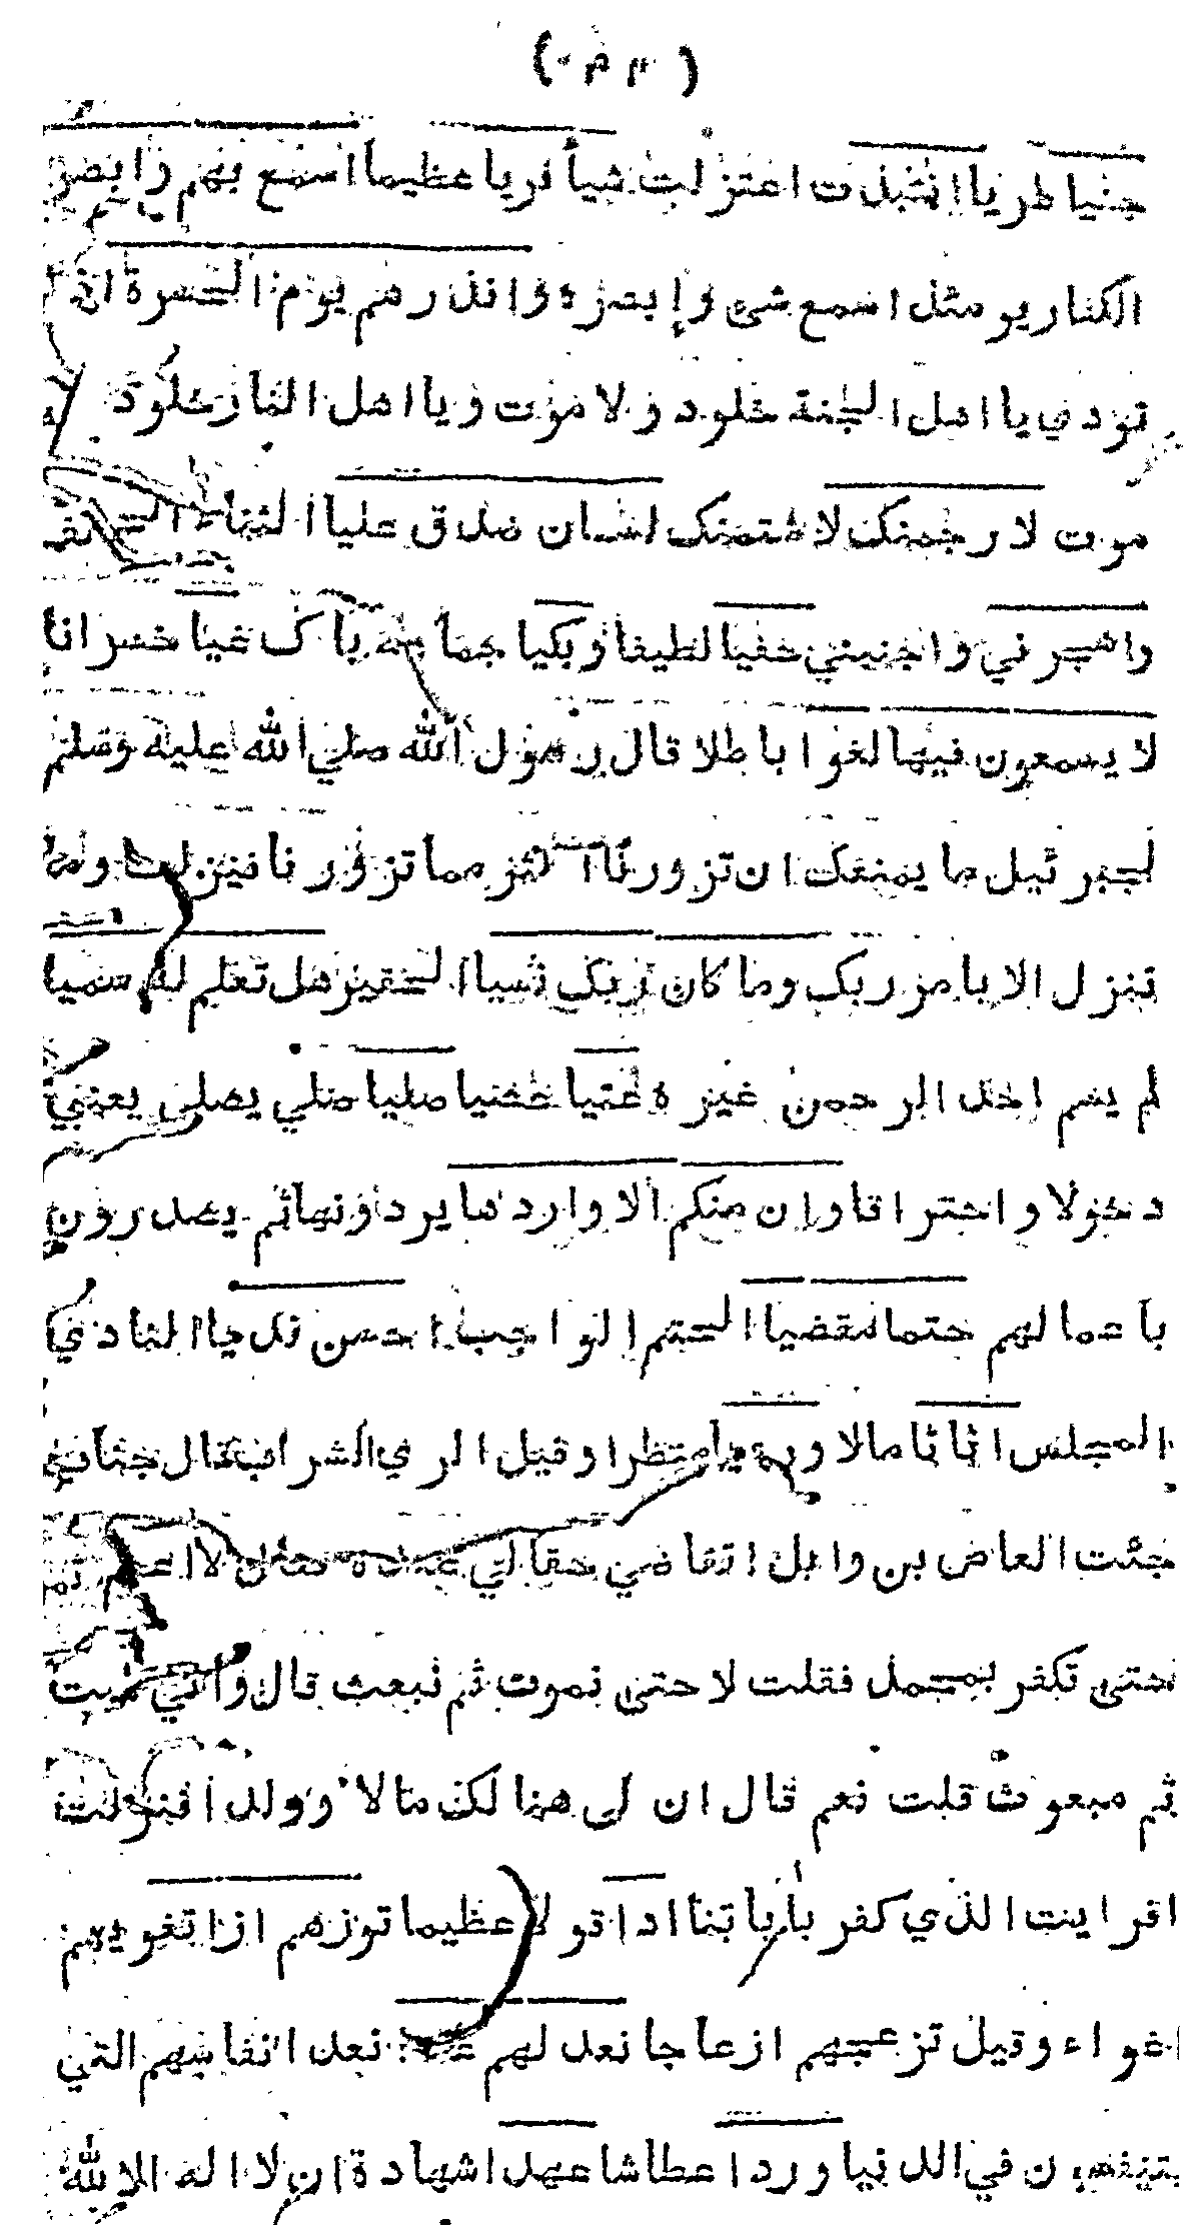 جنيا طريا انتبذت اعتزلت شيأ فريا عظيما اسمع بهم وابصر
الكفار يومئذ اسمع شئ وابصره وانذرهم يوم الحسرة اذا
نودي يا اهل الجنة خلود ولا موت ويا اهل النار خلود
موت لا رجمنك لاشتمنك لسان صدق عليا الثناء الحسن
واهجرني واجنبني حفيا لطيفا وبكيا جماعة باك غيا خسرانا
لا يسمعون فيها لغوا باطلا قال رسول الله صلي الله عليه وسلم
لجبرئيل ما يمنعك ان تزورنا اكثر مما تزورنا فنزلت وما
نتنزل الا بامر ربك وما كان ربك نسيا الحقير هل تعلم له سميا
لم يسم احد الرحمن غيره عتيا عصيا صليا صلي يصلى يعني
دخولا واحتراقا وان منكم الا واردها يردونها ثم يصدرون
باعمالهم حتما مقضيا الحتم الواجب احسن نديا النادي
المجلس اثاثا مالا ورءيا منظرا وقيل الري الشراب قال
جئت العاص بن وايل اتقاضي حقا لي عنده فقال لا اعطيك
حتى تكفر بمحمد فقلت لا حتى تموت ثم تبعث قال واني لميت
ثم مبعوث قلت نعم قال ان لى هناك مالا وولدا فنزلت
افرايت الذي كفر باياتنا ادا قولا عظيما توزهم ازا تغويهم
اغواء وقيل تزعجهم ازعاجا نعد لهم عدا نعد انفاسهم التي
يتنفسون في الدنيا وردا عطاشا عهدا شهادة ان لا اله الا الله